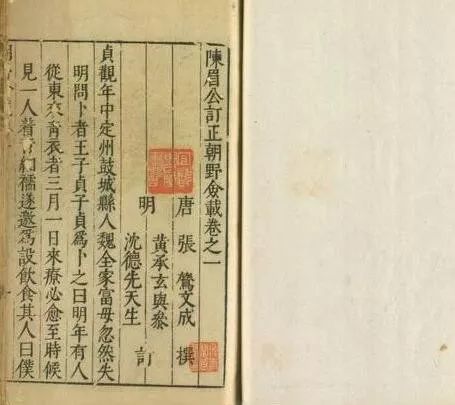 陳眉公訂正朝野僉載卷之一
唐 張鷟文成 撰
明 黃承玄與參
沈德先天生 訂
貞觀年中定州鼓城縣人魏全家富母忽然失
明問卜者王子貞子貞爲卜之曰明年有人
從東來青衣者三月一日來療必愈至時候
見一人着青紬襦遂邀爲設飲食其人曰僕